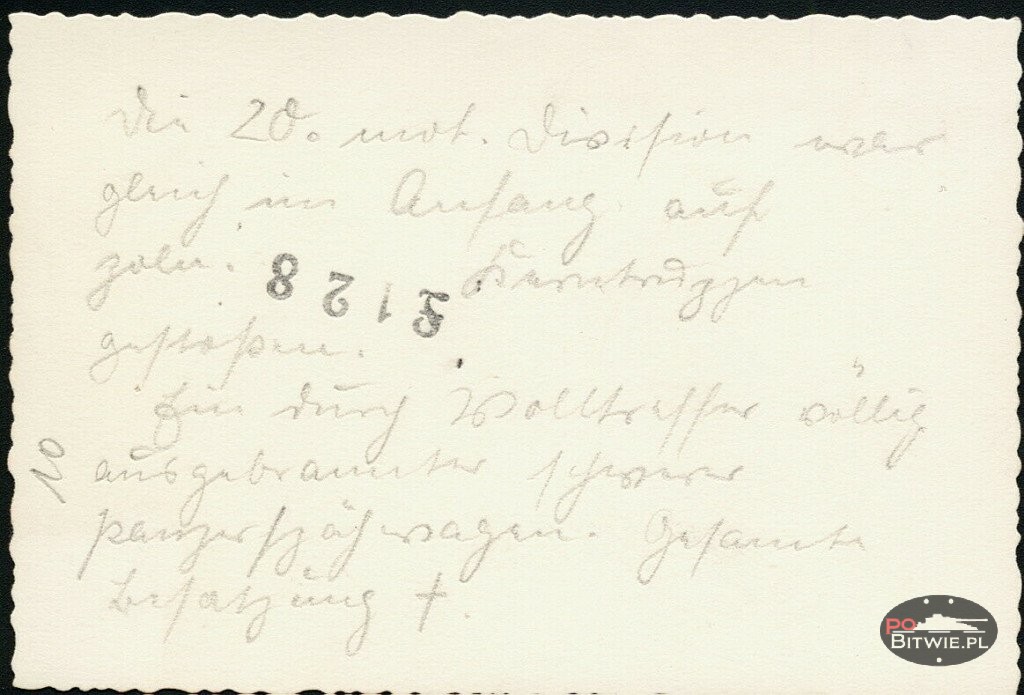 Die 20. mot. Division war
gleich im Anfang auf
poln. Kerntruppen
gestoßen.
Ein durch Volltreffer völlig
ausgebrannter schwerer
Panzerspähwagen. Gesamte
Besatzung †.
8 2 1
20
PO
BITWIE.PL